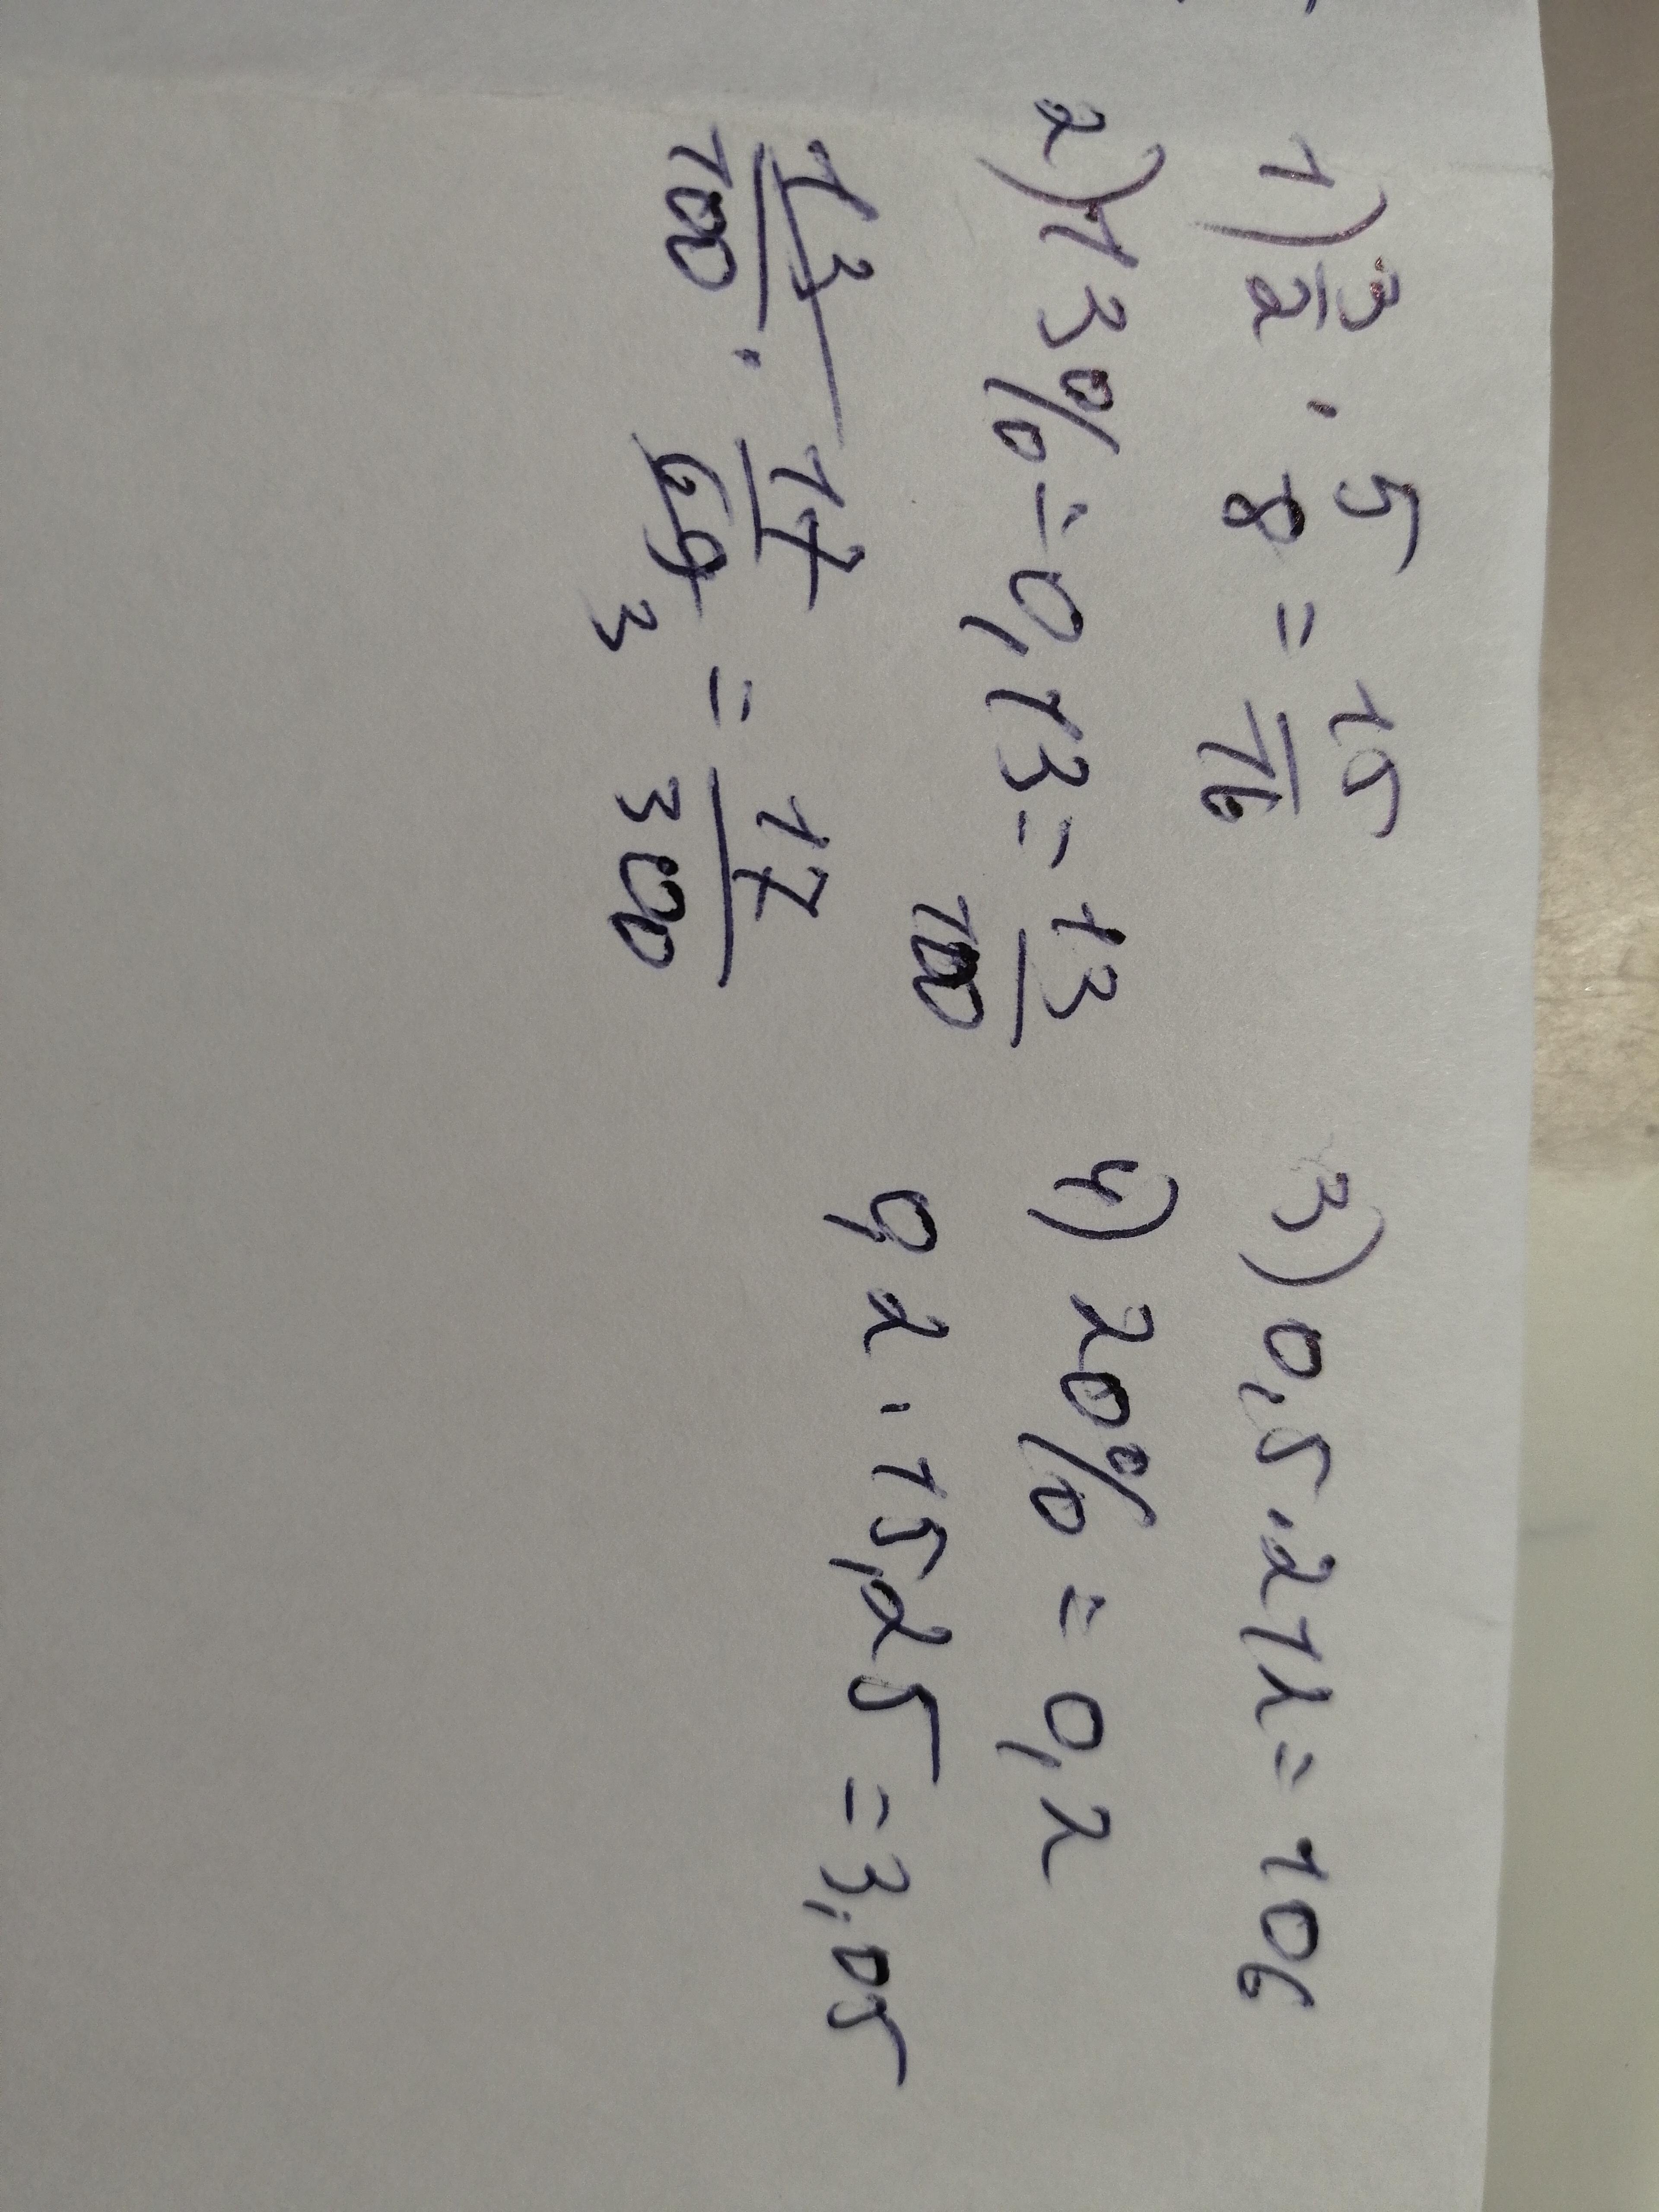 1) 3/2 · 5/8 = 15/16
2) 13% = 0,13 = 13/100
13/100 · 17/69 3 = 17/300
3) 0,5 · 212 = 106
4) 20% = 0,2
0,2 · 15,25 = 3,05